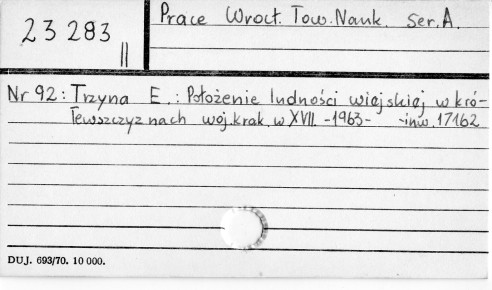 23 283
II
Prace Wrocł. Tow. Nauk. Ser. A.
Nr 92: Trzyna E.: Położenie ludności wiejskiej w kró-
lewszczyznach woj. krak. w XVII. -1963- -inw. 17162
DUJ. 693/70. 10 000.